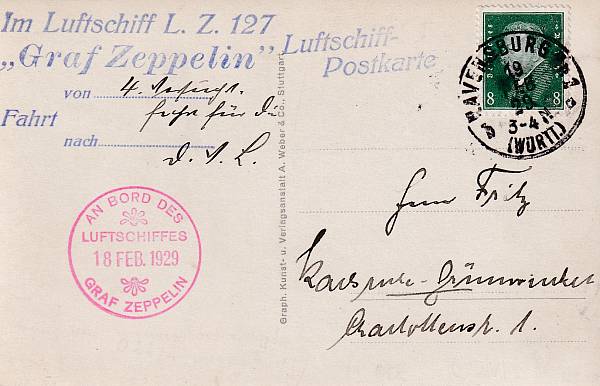 Im Luftschiff L. Z. 127
„Graf Zeppelin"
Luftschiff-
Postkarte
von 4. Versuchs-
Fahrt
fahrt für die
nach
D. V. L.
AN BORD DES
LUFTSCHIFFES
18 FEB. 1929
GRAF ZEPPELIN
Graph. Kunst- u. Verlagsanstalt A. Weber & Co., Stuttgart
8 8
RAVENSBURG
19
3-4 N
(WÜRTT)
Fritz
Karlsruhe-Grünwinkel
Charlottenstr. 1.